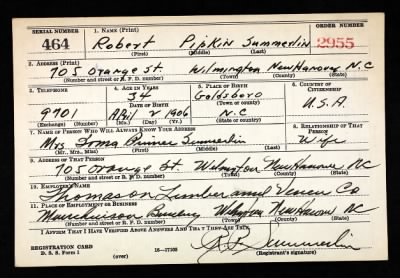 SERIAL NUMBER
1. NAME (Print)
ORDER NUMBER
464
Robert Pipkin Summerlin
2955
(First) (Middle) (Last)
2. ADDRESS (Print)
705 Orange St. Wilmington New Hanover N.C
(Number and street or R. F. D. number) (Town) (County) (State)
3. TELEPHONE
4. AGE IN YEARS
5. PLACE OF BIRTH
6. COUNTRY OF CITIZENSHIP
34
Goldsboro
DATE OF BIRTH
(Town or county)
9701
April 1906
N.C
U.S.A.
(Exchange) (Number)
(Mo.) (Day) (Yr.)
(State or country)
7. NAME OF PERSON WHO WILL ALWAYS KNOW YOUR ADDRESS
8. RELATIONSHIP OF THAT PERSON
Mrs. Irma Summerlin
Wife
(Mr., Mrs., Miss) (First) (Middle) (Last)
9. ADDRESS OF THAT PERSON
705 Orange St. Wilmington New Hanover NC
(Number and street or R. F. D. number) (Town) (County) (State)
10. EMPLOYER'S NAME
Thomason Lumber and Veneer Co
11. PLACE OF EMPLOYMENT OR BUSINESS
Murchison Wilmington New Hanover NC
(Number and street or R. F. D. number) (Town) (County) (State)
I AFFIRM THAT I HAVE VERIFIED ABOVE ANSWERS AND THAT THEY ARE TRUE.
REGISTRATION CARD
D. S. S. Form 1
(over)
16—17105
Summerlin
(Registrant's signature)